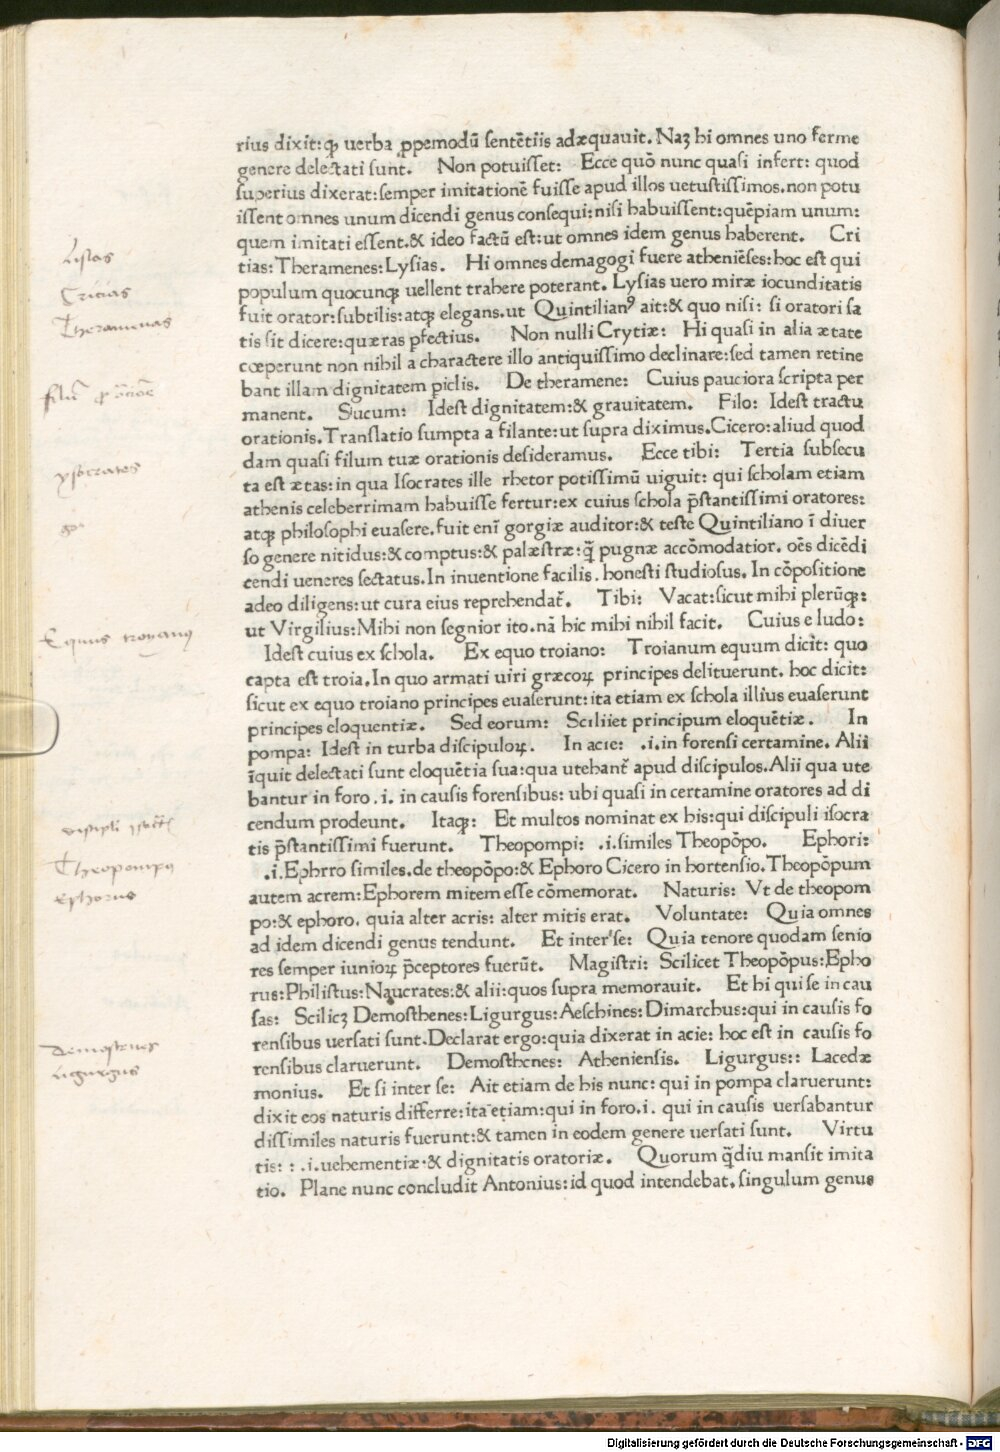 rius dixit:qꝫ uerba ꝓpemodū sentētiis adæquauit. Naꝫ hi omnes uno ferme
genere delectati sunt. Non potuisset: Ecce quō nunc quasi infert: quod
superius dixerat:semper imitationē fuisse apud illos uetustissimos.non potu
issent omnes unum dicendi genus consequi:nisi habuissent:quēpiam unum:
quem imitati essent.& ideo factū est:ut omnes idem genus haberent. Cri
tias:Theramenes:Lysias. Hi omnes demagogi fuere atheniēses:hoc est qui
populum quocunqꝫ uellent trahere poterant. Lysias uero miræ iocunditatis
fuit orator:subtilis:atqꝫ elegans.ut Quintilianꝰ ait:& quo nisi: si oratori sa
tis sit dicere:quæras pfectius. Non nulli Crytiæ: Hi quasi in alia ætate
cœperunt non nihil a charactere illo antiquissimo declinare:sed tamen retine
bant illam dignitatem piclis. De theramene: Cuius pauciora scripta per
manent. Sucum: Idest dignitatem:& grauitatem. Filo: Idest tractu
orationis.Translatio sumpta a filante:ut supra diximus.Cicero:aliud quod
dam quasi filum tuæ orationis desideramus. Ecce tibi: Tertia subsecu
ta est ætas:in qua Isocrates ille rhetor potissimū uiguit: qui scholam etiam
athenis celeberrimam habuisse fertur:ex cuius schola p̄stantissimi oratores:
atqꝫ philosophi euasere.fuit enī gorgiæ auditor:& teste Quintiliano ī diuer
so genere nitidus:& comptus:& palæstræ:q̄ pugnæ accōmodatior. oēs dicēdi
cendi ueneres sectatus.In inuentione facilis. honesti studiosus. In cōpositione
adeo diligens:ut cura eius reprehendat̄. Tibi: Vacat:sicut mihi plerūqꝫ:
ut Virgilius:Mihi non segnior ito.nā hic mihi nihil facit. Cuius e ludo:
Idest cuius ex schola. Ex equo troiano: Troianum equum dicit: quo
capta est troia.In quo armati uiri græcoꝝ principes delituerunt. hoc dicit:
sicut ex equo troiano principes euaserunt:ita etiam ex schola illius euaserunt
principes eloquentiæ. Sed eorum: Sciliiet principum eloquētiæ. In
pompa: Idest in turba discipuloꝝ. In acie: .i.in forensi certamine. Alii
īquit delectati sunt eloquētia sua:qua utebant̄ apud discipulos.Alii qua ute
bantur in foro.i. in causis forensibus: ubi quasi in certamine oratores ad di
cendum prodeunt. Itaqꝫ: Et multos nominat ex his:qui discipuli isocra
tis p̄stantissimi fuerunt. Theopompi: .i.similes Theopōpo. Ephori:
.i.Ephrro similes.de theopōpo:& Ephoro Cicero in hortensio.Theopōpum
autem acrem:Ephorem mitem esse cōmemorat. Naturis: Vt de theopom
po:& ephoro. quia alter acris: alter mitis erat. Voluntate: Quia omnes
ad idem dicendi genus tendunt. Et inter se: Quia tenore quodam senio
res semper iunioꝝ p̄ceptores fuerūt. Magistri: Scilicet Theopōpus:Epho
rus:Philistus:Naucrates:& alii:quos supra memorauit. Et hi qui se in cau
sas: Scilicꝫ Demosthenes:Ligurgus:Aeschines:Dimarchus:qui in causis fo
rensibus uersati sunt.Declarat ergo:quia dixerat in acie: hoc est in causis fo
rensibus claruerunt. Demosthenes: Atheniensis. Ligurgus:: Lacedæ
monius. Et si inter se: Ait etiam de his nunc: qui in pompa claruerunt:
dixit eos naturis differre:ita etiam:qui in foro.i. qui in causis uersabantur
dissimiles naturis fuerunt:& tamen in eodem genere uersati sunt. Virtu
tis: : .i.uehementiæ.& dignitatis oratoriæ. Quorum q̄diu mansit imita
tio. Plane nunc concludit Antonius:id quod intendebat.singulum genus
Lisias
Critias
Theramenas
ysocrates
Equus troyanus
Theopompꝰ
Ephorus
Demostenes
Ligurgus
Digitalisierung gefördert durch die Deutsche Forschungsgemeinschaft - DFG